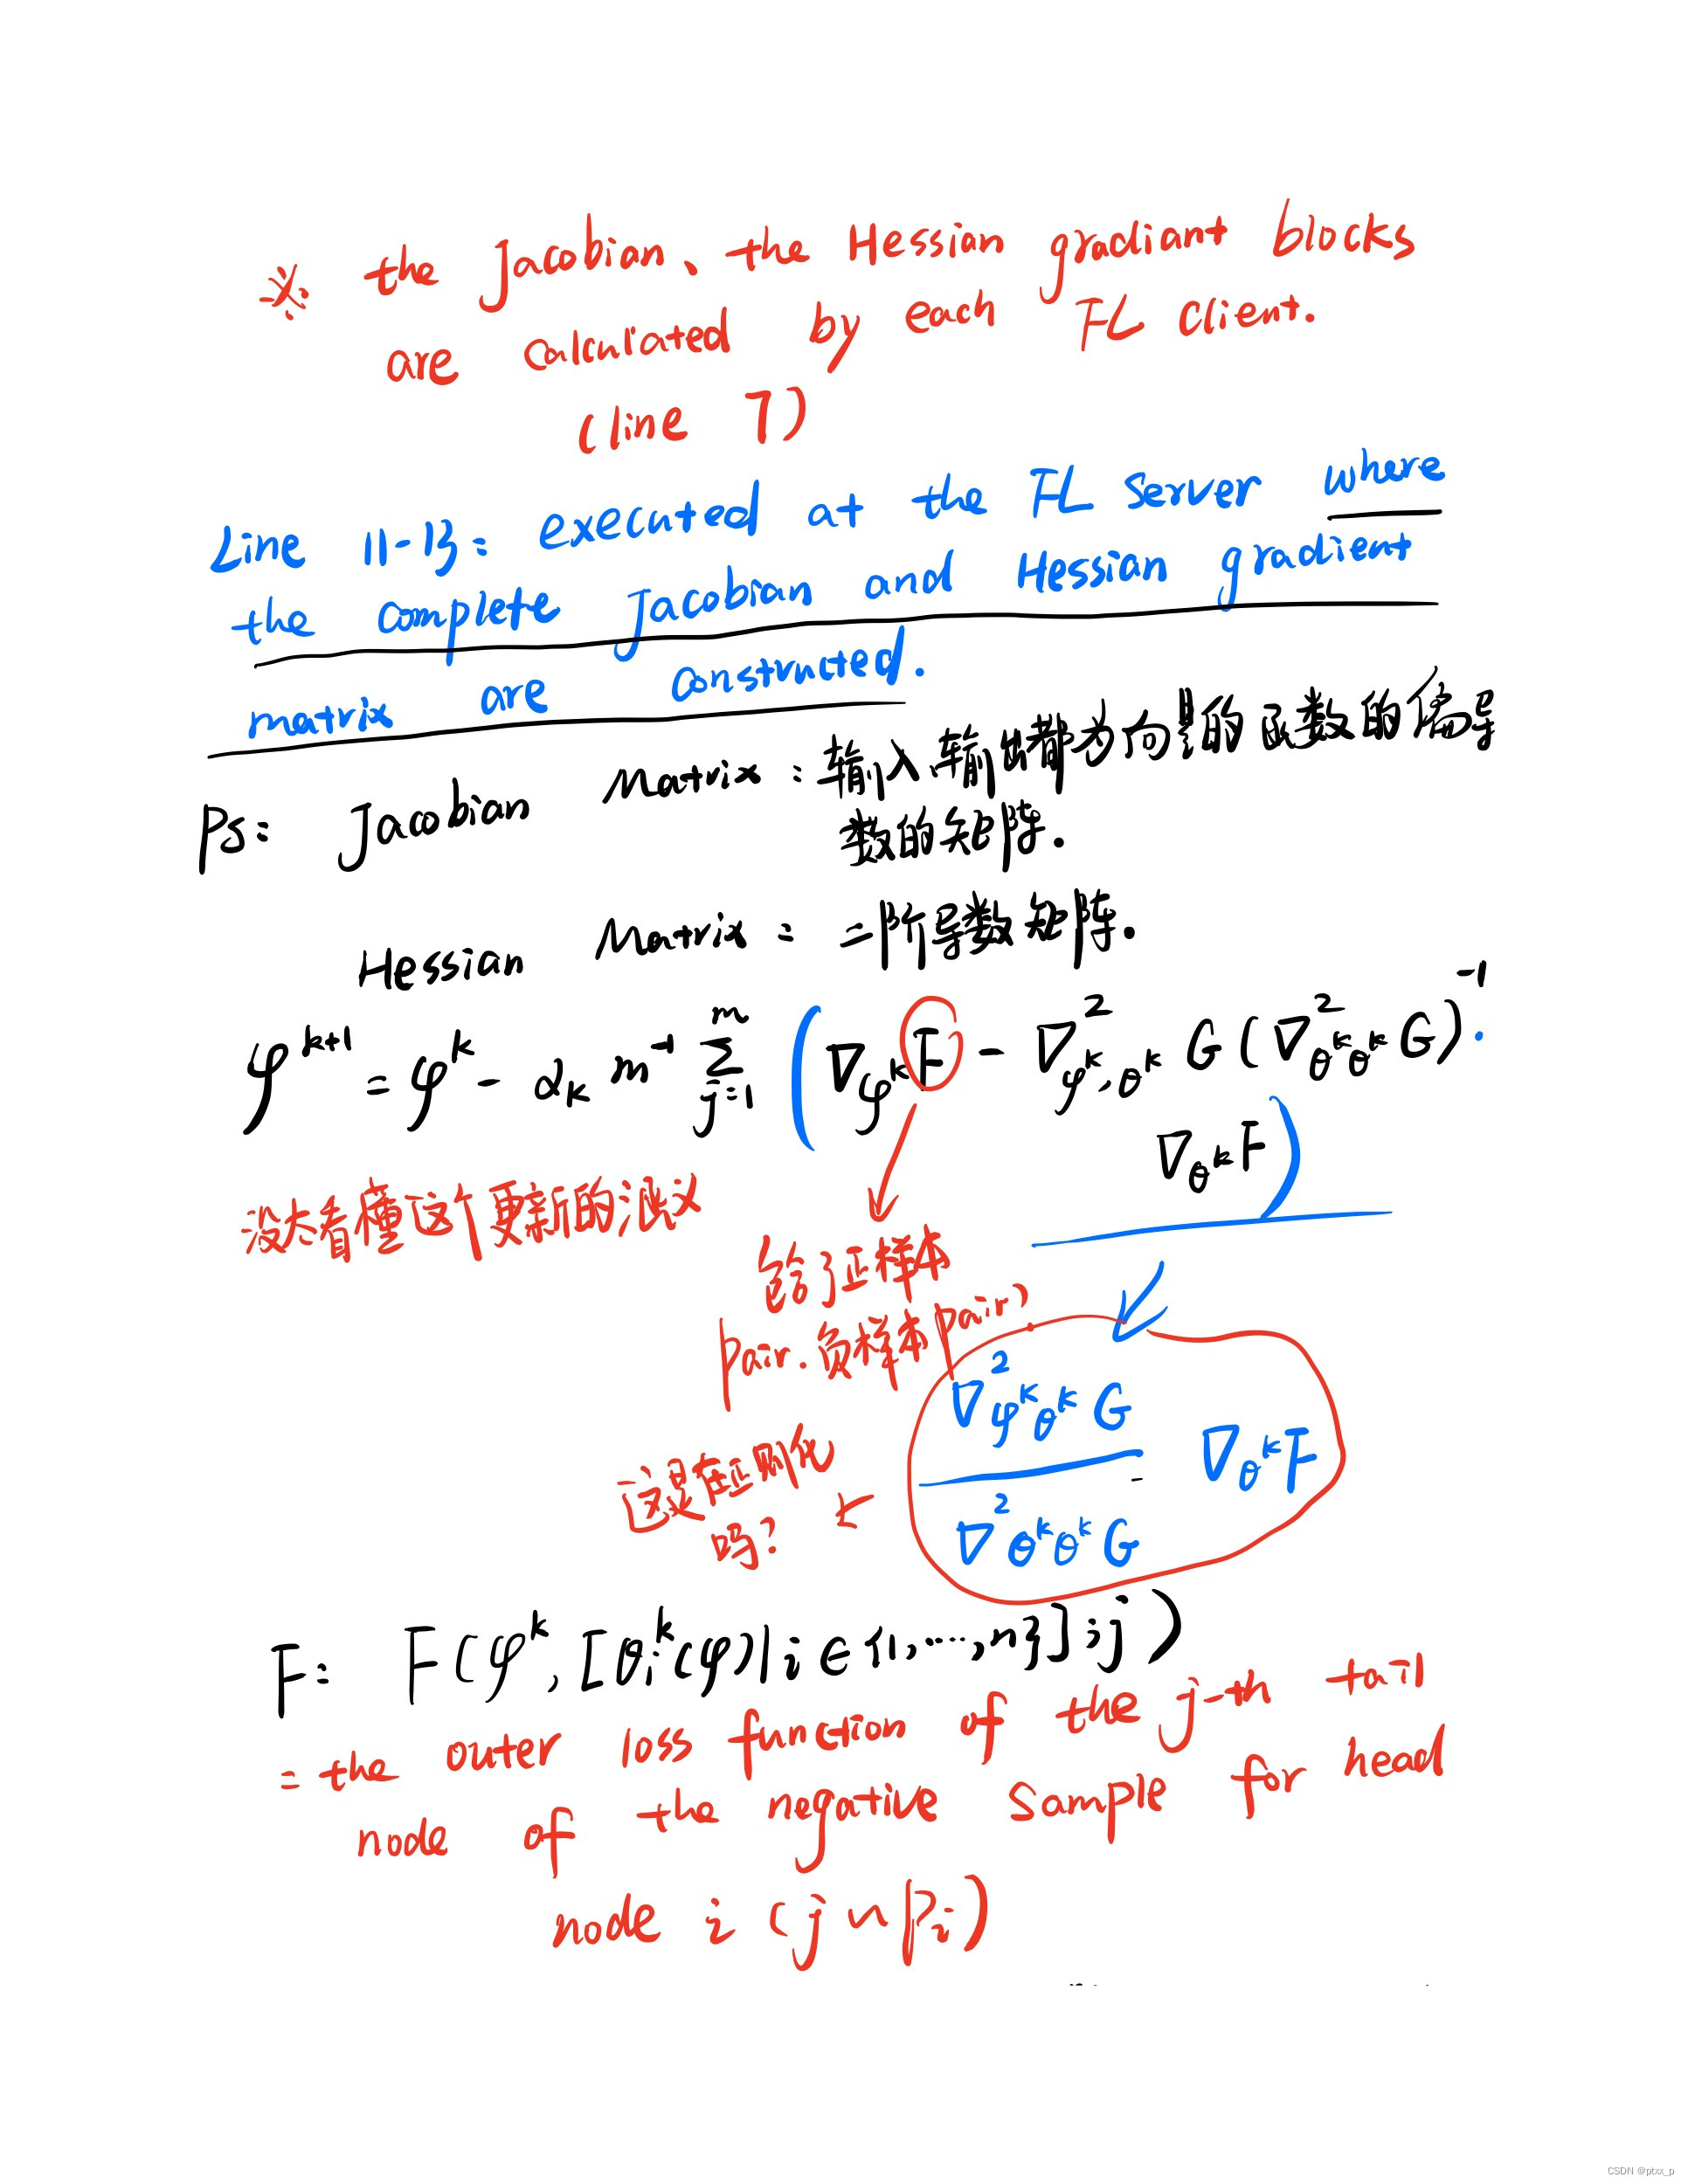 ※ the Jacobian、the Hessian gradiant blocks
are calculated by each FL client.
(line 7)
Line 11-13: executed at the FL server where
the complete Jacobian and Hessian gradient
matrix are constructed.
Ps: Jacobian Matrix: 输入、输出都为向量的函数的偏导
数的矩阵.
Hessian Matrix: 二阶导数矩阵.
φ^{k+1} = φ^k - α_k m^{-1} Σ_{j=1}^{m} ( ∇_{φ^k} F - ∇²_{φ^k, θ^k} G (∇²_{θ^k θ^k} G)^{-1} ·
∇_{θ^k} F )
没太看懂这个更新的涵义
包含了正样本
pair. 负样本pair?
∇²_{φ^k θ^k} G
∇_{θ^k} F
∇² θ^k θ^k G
这是在正则化
吗?
F: F(φ^k, [θ_i^k(φ) | i ∈ {1, ..., n}]; j)
= the outer loss function of the j-th tail
node of the negative sample for head
node i (j ∼ P_i)
CSDN @ptxx_p